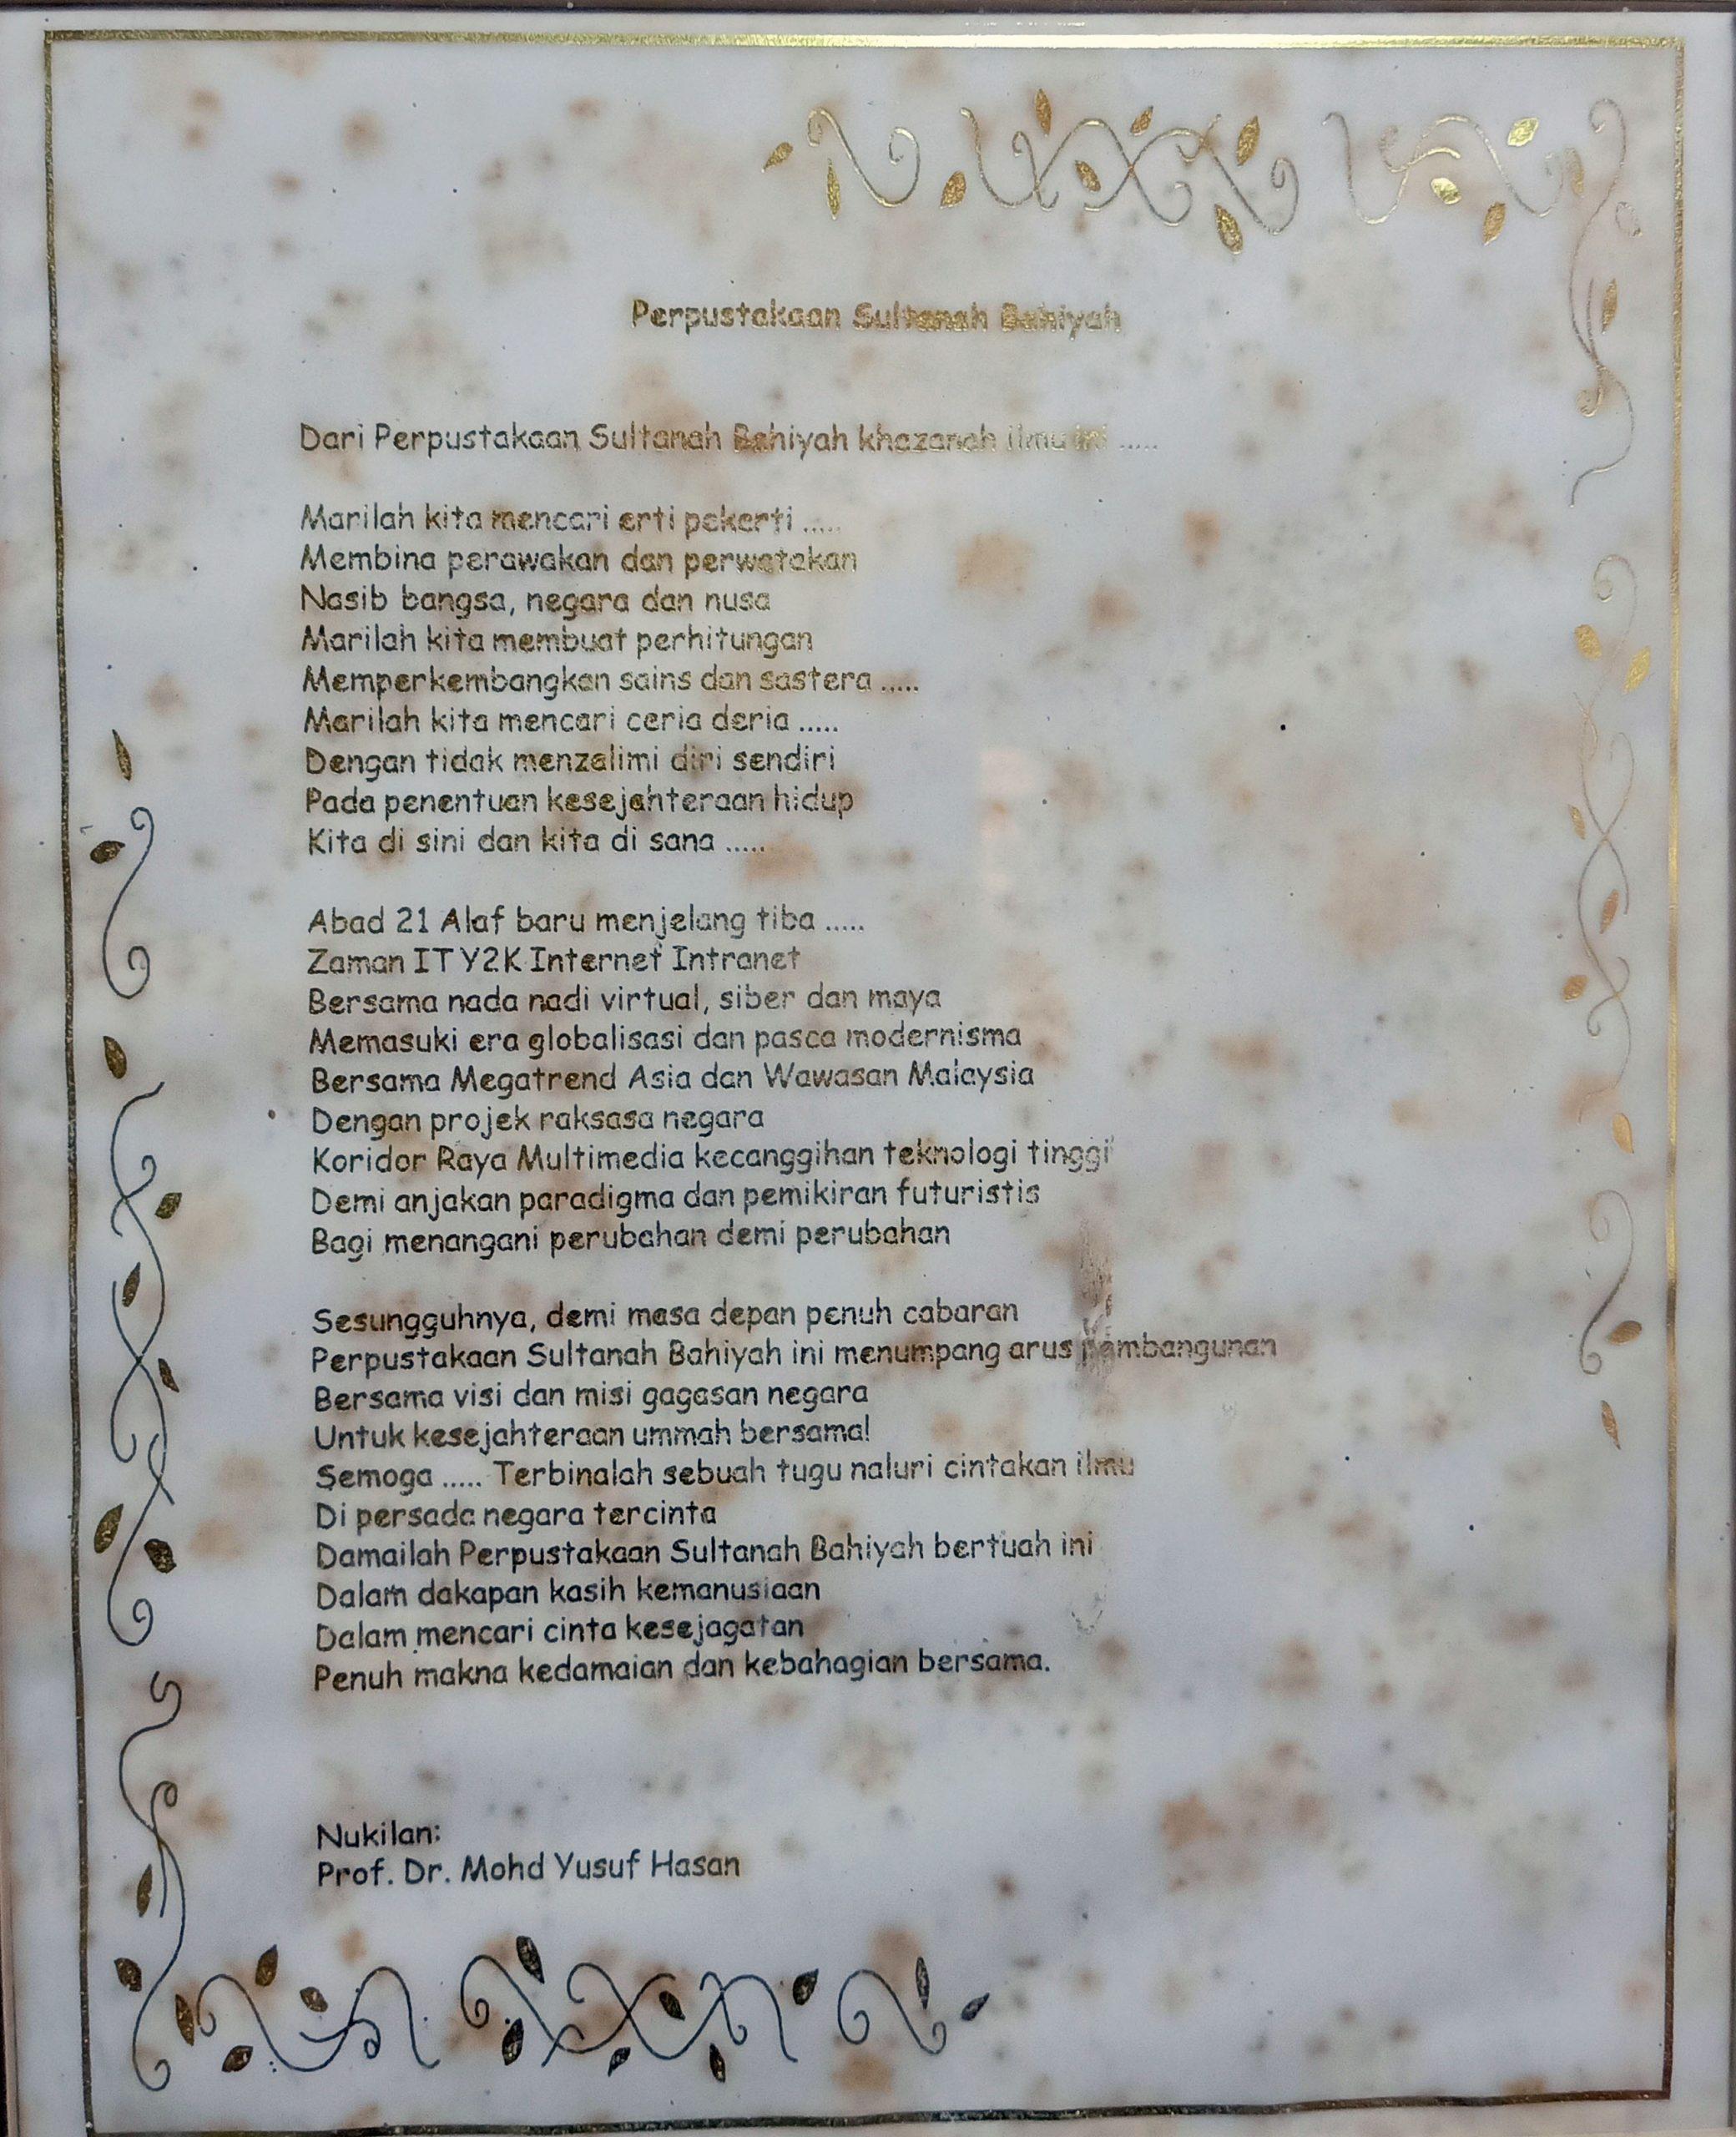 Perpustakaan Sultanah Bahiyah
Dari Perpustakaan Sultanah Bahiyah khazanah ilmu ini .....
Marilah kita mencari erti pekerti .....
Membina perawakan dan perwatakan
Nasib bangsa, negara dan nusa
Marilah kita membuat perhitungan
Memperkembangkan sains dan sastera .....
Marilah kita mencari ceria deria .....
Dengan tidak menzalimi diri sendiri
Pada penentuan kesejahteraan hidup
Kita di sini dan kita di sana .....
Abad 21 Alaf baru menjelang tiba .....
Zaman IT Y2K Internet Intranet
Bersama nada nadi virtual, siber dan maya
Memasuki era globalisasi dan pasca modernisma
Bersama Megatrend Asia dan Wawasan Malaysia
Dengan projek raksasa negara
Koridor Raya Multimedia kecanggihan teknologi tinggi
Demi anjakan paradigma dan pemikiran futuristis
Bagi menangani perubahan demi perubahan
Sesungguhnya, demi masa depan penuh cabaran
Perpustakaan Sultanah Bahiyah ini menumpang arus pembangunan
Bersama visi dan misi gagasan negara
Untuk kesejahteraan ummah bersama!
Semoga ..... Terbinalah sebuah tugu naluri cintakan ilmu
Di persada negara tercinta
Damailah Perpustakaan Sultanah Bahiyah bertuah ini
Dalam dakapan kasih kemanusiaan
Dalam mencari cinta kesejagatan
Penuh makna kedamaian dan kebahagian bersama.
Nukilan:
Prof. Dr. Mohd Yusuf Hasan